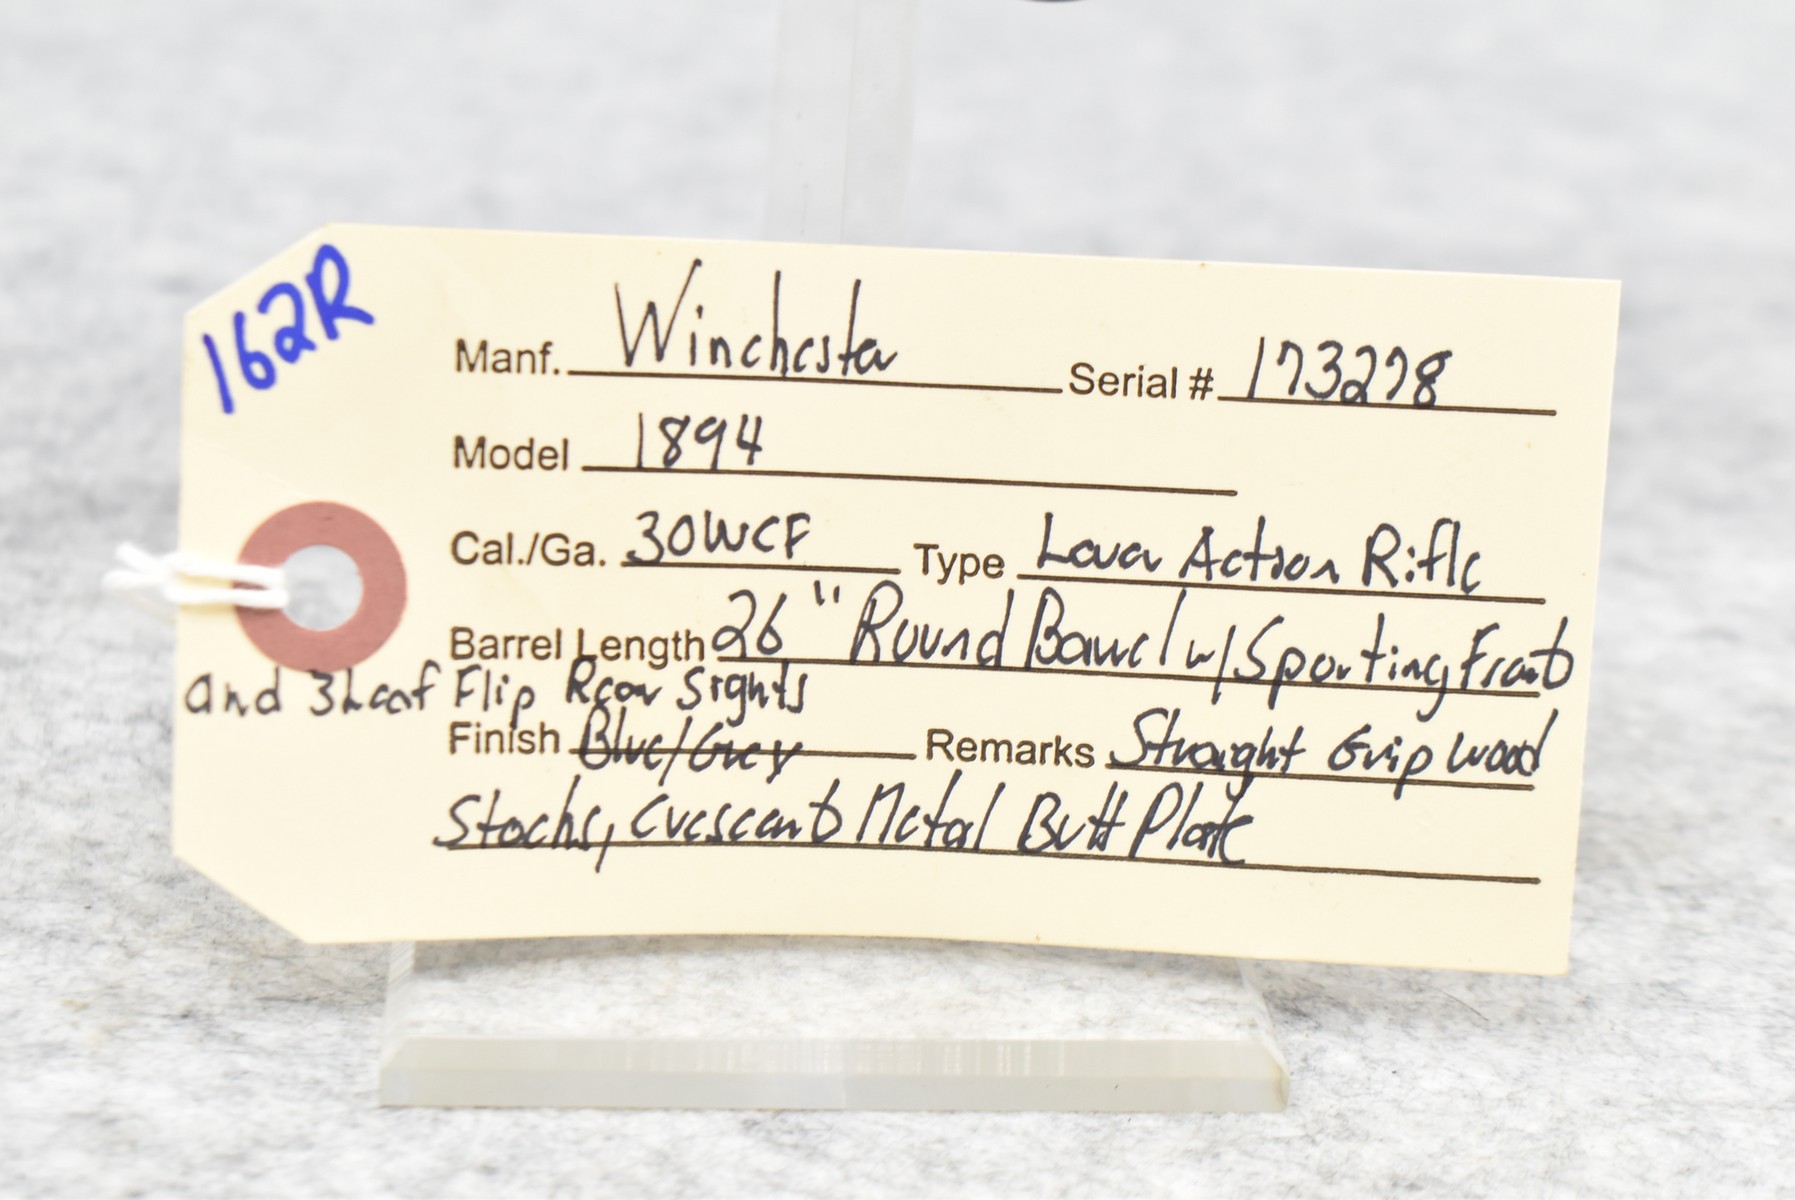 162R
Manf. Winchester Serial # 173278
Model 1894
Cal./Ga. 30WCF Type Lever Action Rifle
Barrel Length 26" Round Barrel w/ Sporting Front
and 3 Leaf Flip Rear Sights
Finish Blue/Grey Remarks Straight Grip Wood
Stocks, Crescent Metal Butt Plate